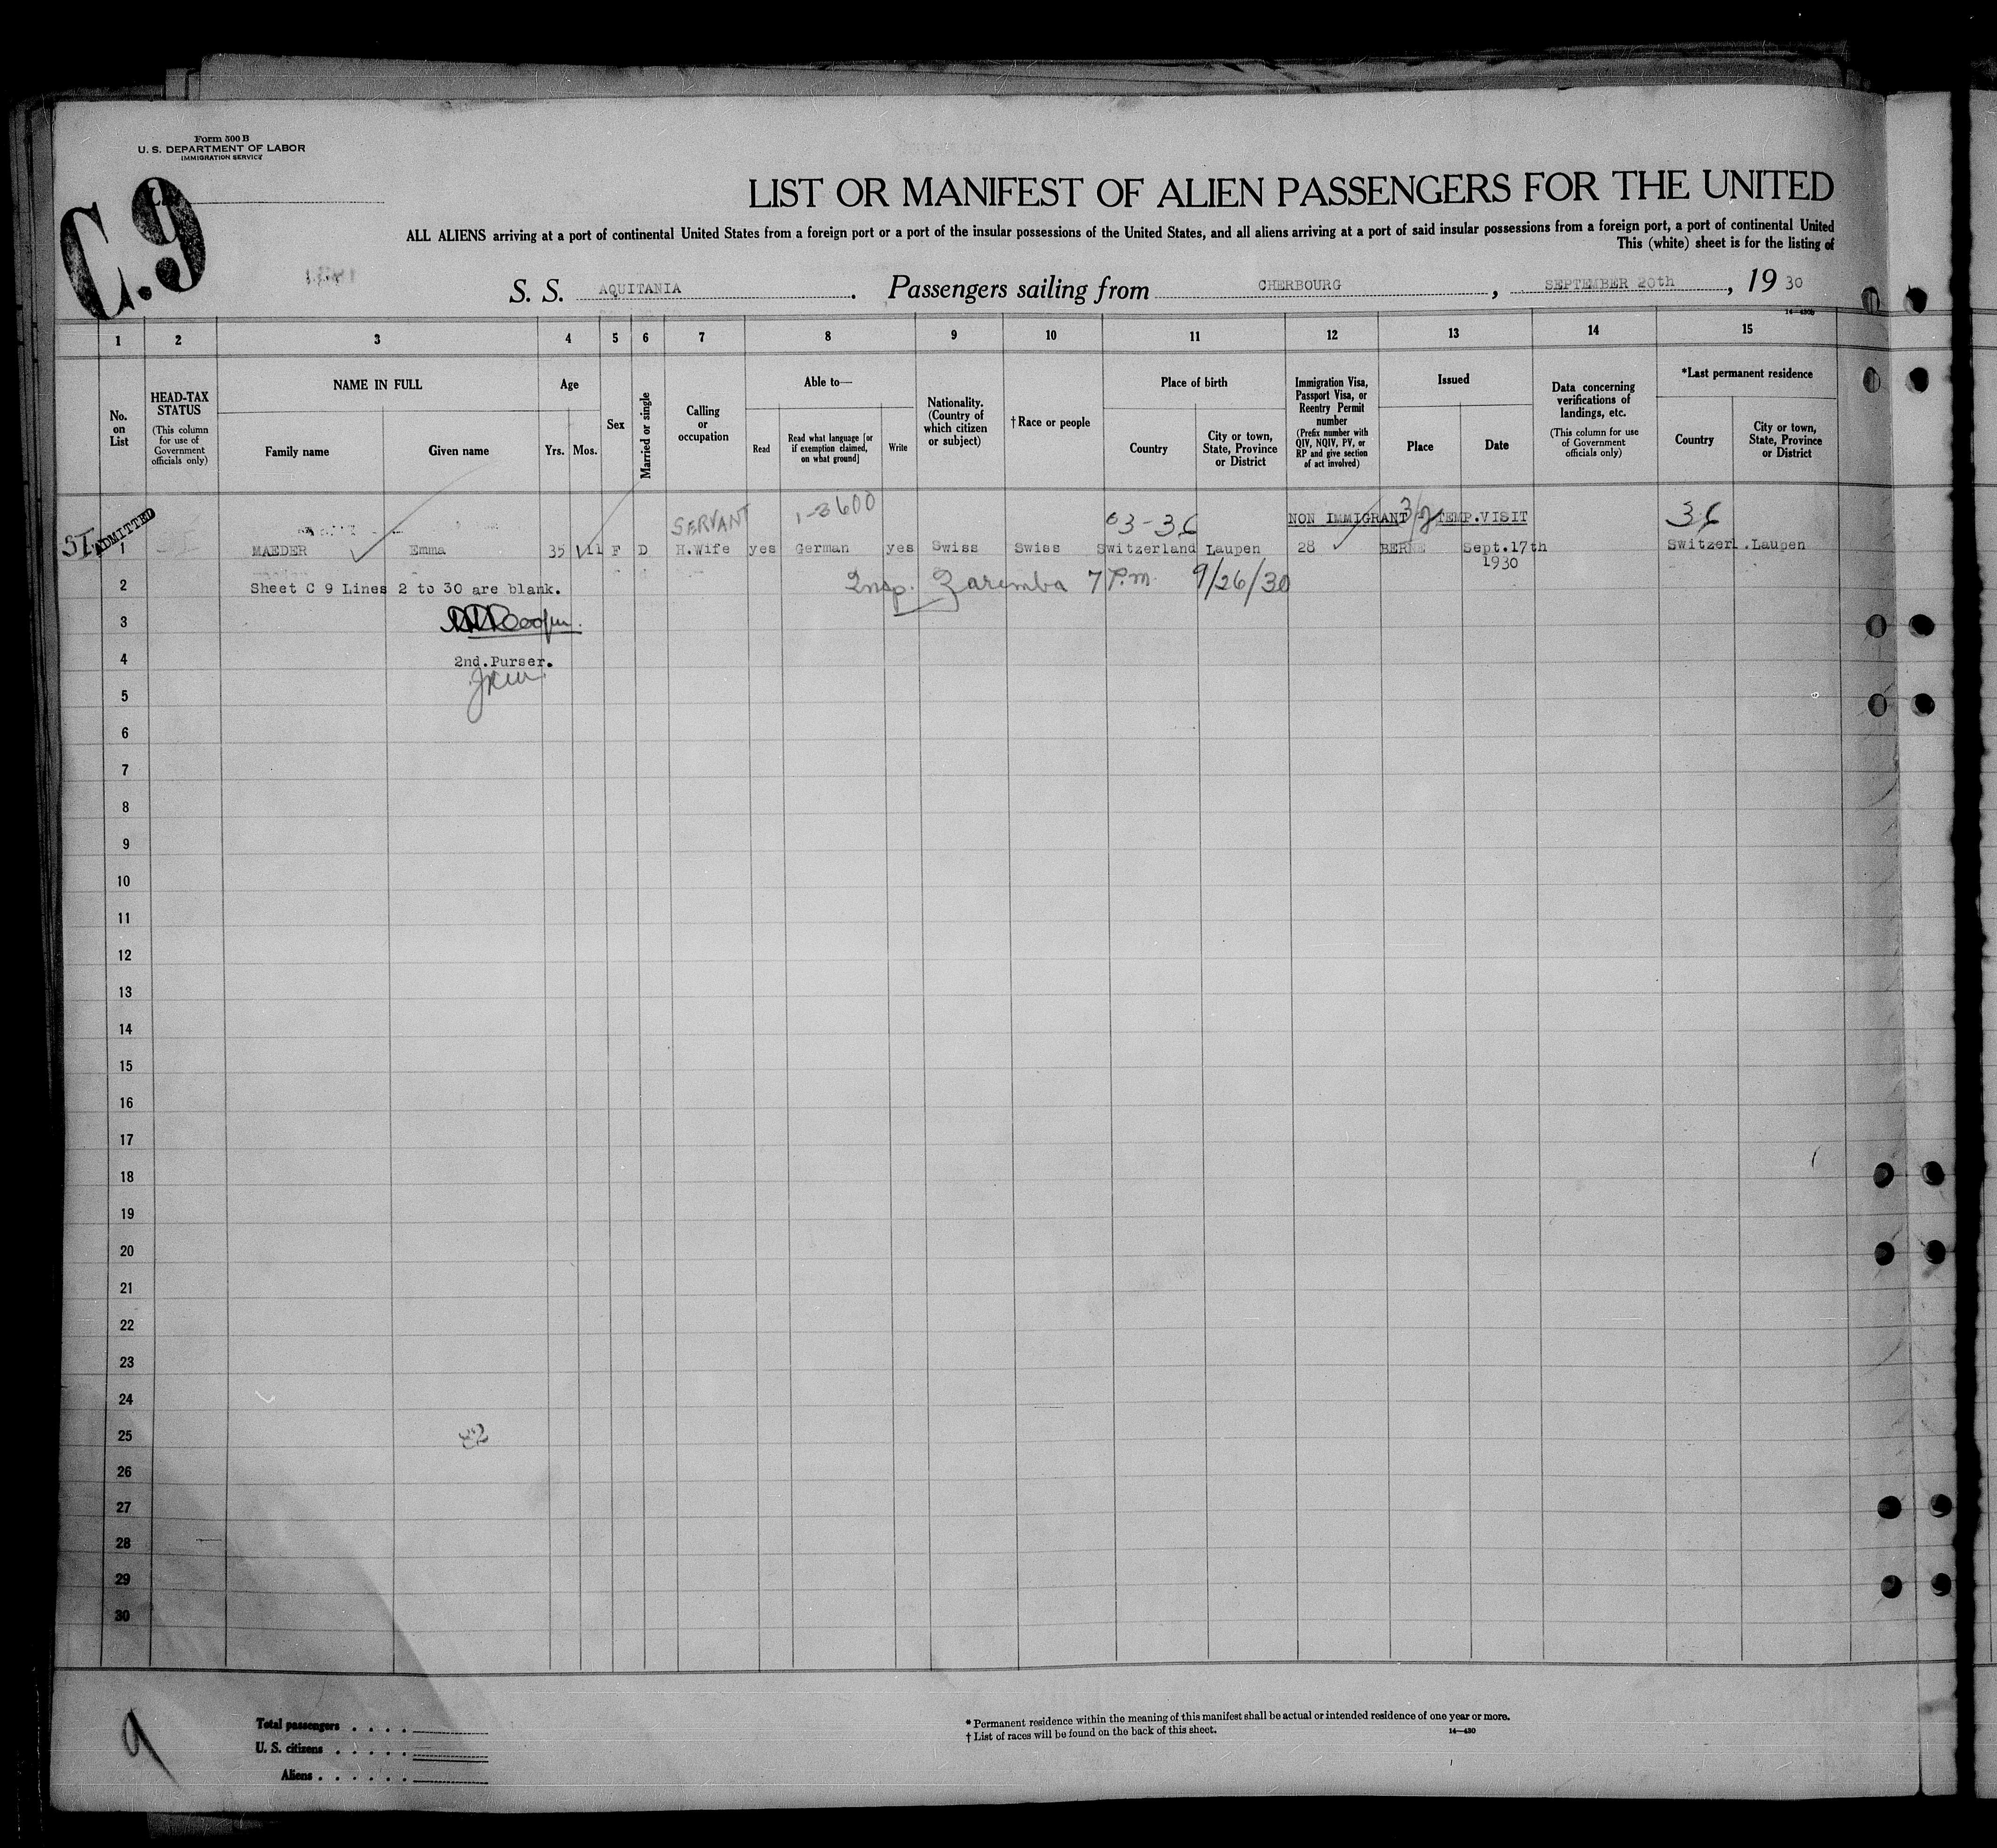 Form 500 B
U. S. DEPARTMENT OF LABOR
IMMIGRATION SERVICE
C.9
LIST OR MANIFEST OF ALIEN PASSENGERS FOR THE UNITED
ALL ALIENS arriving at a port of continental United States from a foreign port or a port of the insular possessions of the United States, and all aliens arriving at a port of said insular possessions from a foreign port, a port of continental United
This (white) sheet is for the listing of
S. S. AQUITANIA. Passengers sailing from CHERBOURG, SEPTEMBER 20th, 1930
1 2 3 4 5 6 7 8 9 10 11 12 13 14 15
No. on List
HEAD-TAX STATUS
(This column for use of Government officials only)
NAME IN FULL
Family name
Given name
Age
Yrs.
Mos.
Sex
Married or single
Calling or occupation
Able to—
Read
Read what language [or if exemption claimed, on what ground]
Write
Nationality. (Country of which citizen or subject)
†Race or people
Place of birth
Country
City or town, State, Province or District
Immigration Visa, Passport Visa, or Reentry Permit number
(Prefix number with QIV, NQIV, PV, or RP and give section of act involved)
Issued
Place
Date
Data concerning verifications of landings, etc.
(This column for use of Government officials only)
*Last permanent residence
Country
City or town, State, Province or District
SERVANT 1-3600 63-36 NON IMMIGRANT 3/2 TEMP.VISIT 36
SI ADMITTED
1 MAEDER Emma 35 11 F D H.Wife yes German yes Swiss Swiss Switzerland Laupen 28 BERNE Sept.17th Switzerl.Laupen
1930
2 Sheet C 9 Lines 2 to 30 are blank. Insp. Zaremba 7 P.m. 9/26/30
3
4 2nd.Purser.
5
6
7
8
9
10
11
12
13
14
15
16
17
18
19
20
21
22
23
24
25
26
27
28
29
30
9
Total passengers . . . .
U. S. citizens . . . . .
Aliens . . . . . .
* Permanent residence within the meaning of this manifest shall be actual or intended residence of one year or more.
† List of races will be found on the back of this sheet.
14—430